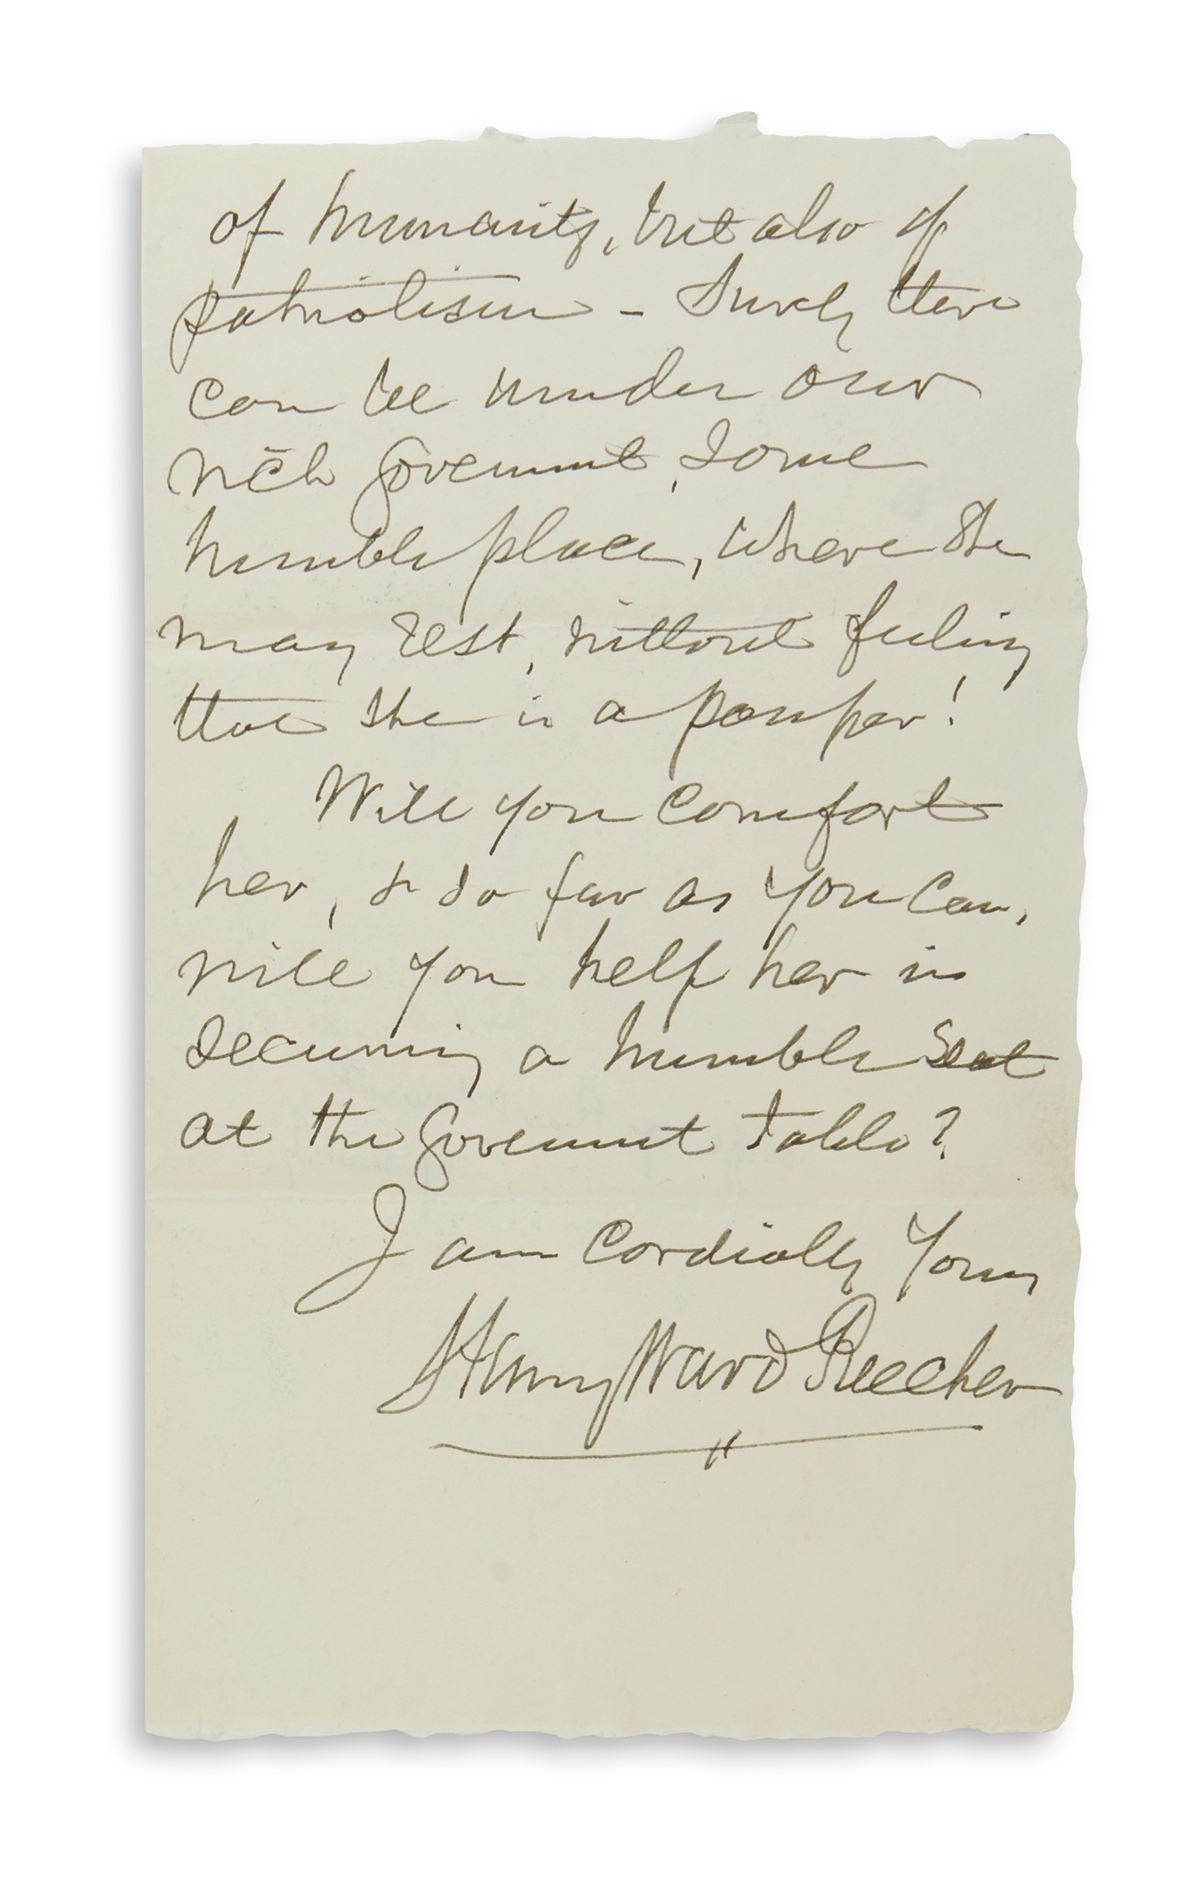 of humanity, but also of
patriotism - Surely there
can be under our
rich Goverment, some
humble place, where she
may rest, without feeling
that she is a pauper!
Will you comfort
her, & so far as you can,
will you help her in
securing a humble seat
at the Goverment table?
I am cordially yours
Henry Ward Beecher